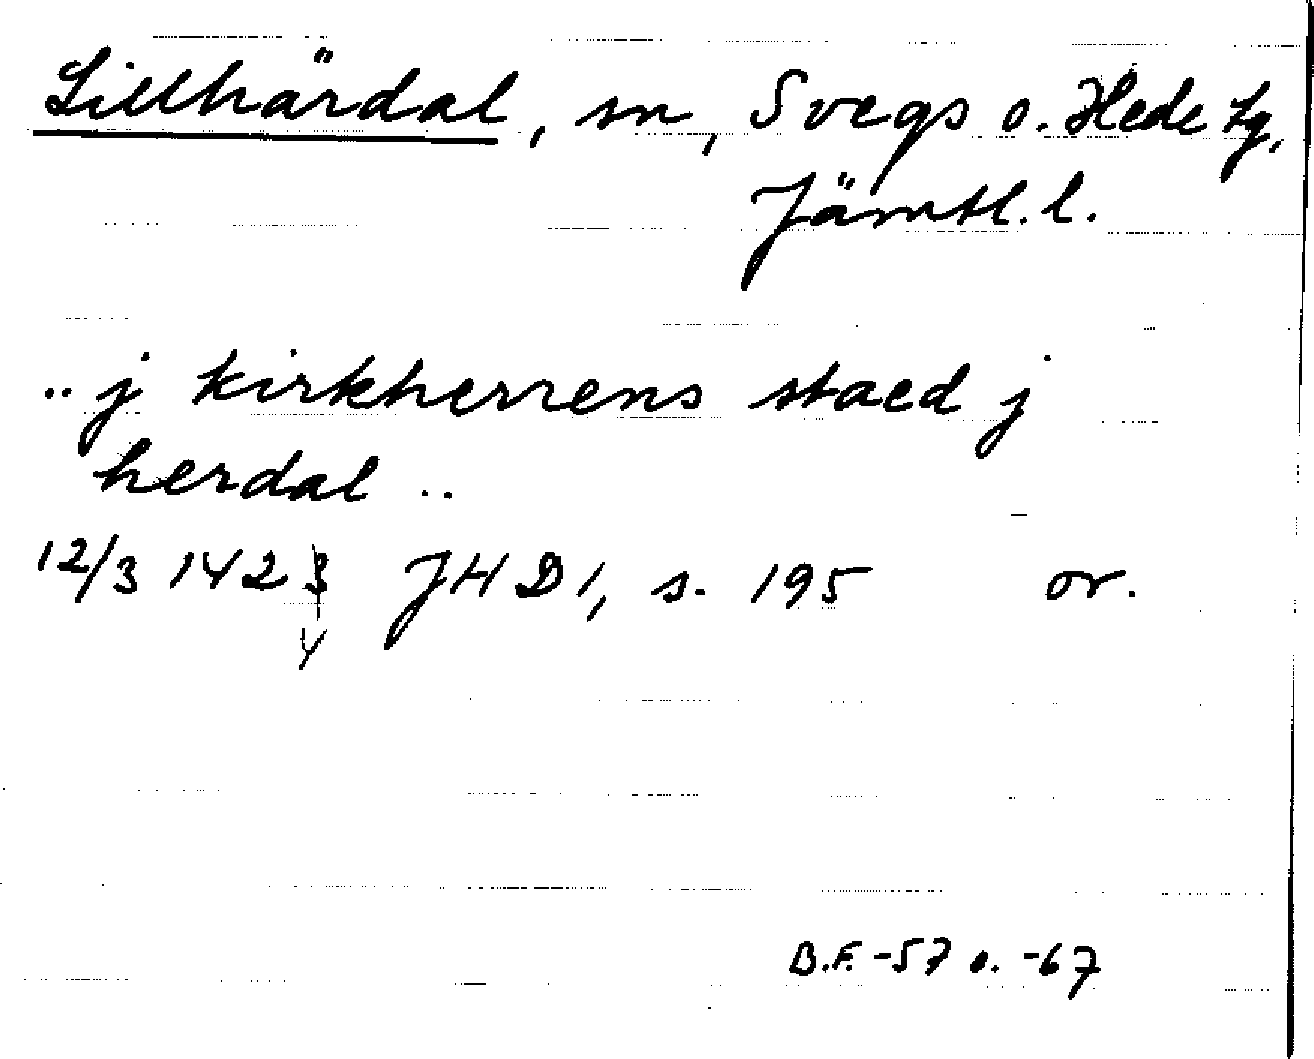 Lillhärdal, sn, Svegs o. Hede tg,
Jämtl. l.
.. j kirkherrens staed j
herdal ..
12/3 1423 JHD 1, s. 195 or.
4
B.F. -57 o. -67